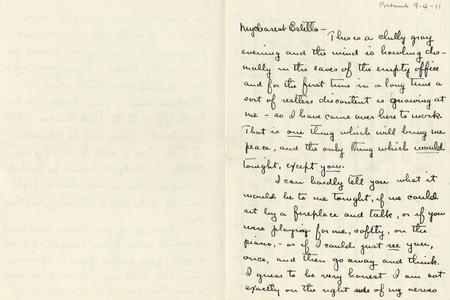 Postmark 9-4-11
My dearest Estelle -
This is a chilly gray
evening and the wind is howling dis-
mally in the eaves of the empty office
and for the first time in a long time a
sort of restless discontent is gnawing at
me - so I have come over here to work.
That is one thing which will bring me
peace, and the only thing which would
tonight, except you.
I can hardly tell you what it
would be to me tonight, if we could
sit by a fireplace and talk, or if you
were playing for me, softly, on the
piano, - or if I could just see you,
once, and then go away and think.
I guess to be very honest I am not
exactly on the right side of my nerves